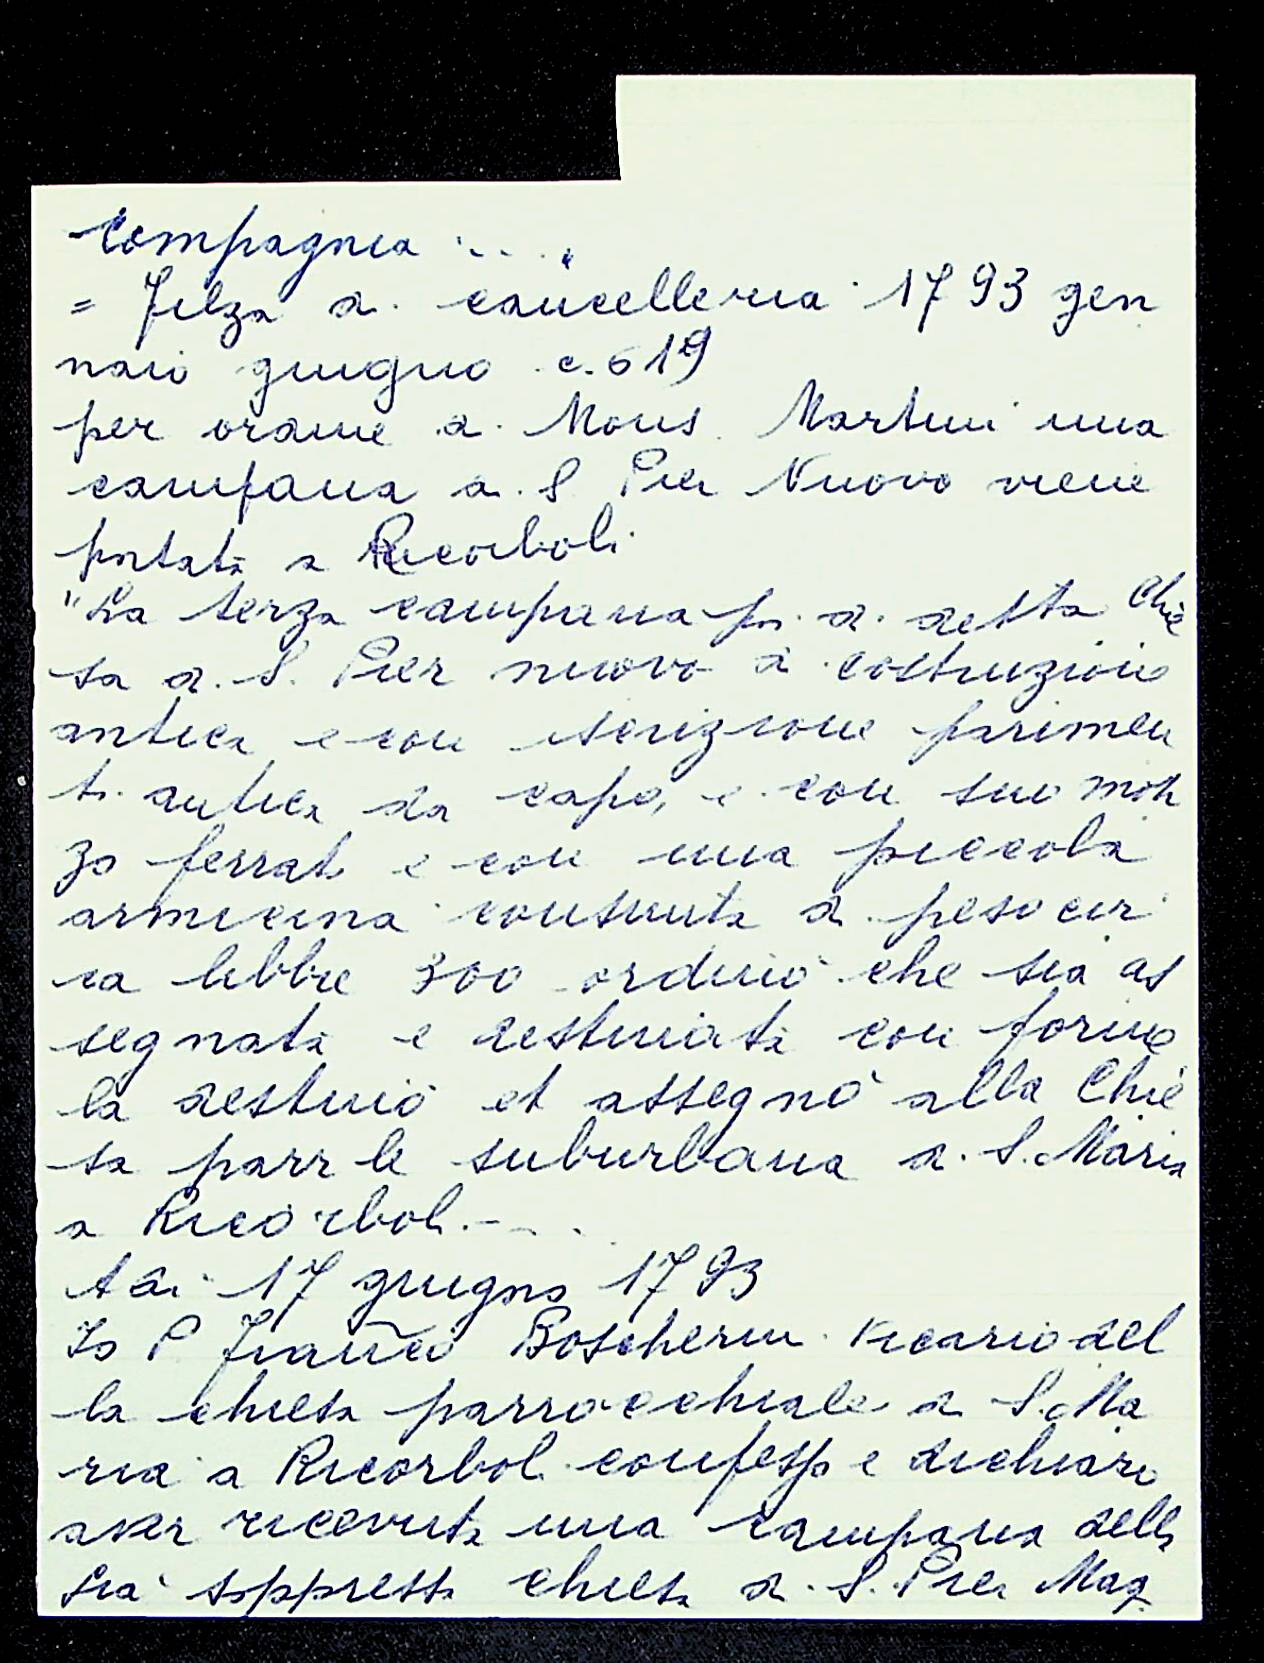 Compagnia ....
= Filza di cancelleria 1793 gen
naio giugno c. 619
per ordine di Mons. Martini una
campana di S Pier Nuovo viene
portata a Ricorboli
"La terza campana poi di detta Chie
sa di S. Pier nuovo di costruzione
antica e con iscrizione parimen
ti antica da capo, e con suo moz
zo ferrato e con una piccola
armicina construita di peso cir
ca libbre 300 ordinò che sia as
segnata e destinata con forme
la destinò et assegnò alla Chie
sa parr le suburbana di S. Maria
a Ricorboli - - .
A di 17 giugno 1793
Io P Franco Boscherini Vicario del
la chiesa parrocchiale di S. Ma
ria a Ricorboli confesso e dichiaro
aver ricevuta una campana della
già soppressa chiesa di S. Pier Mag